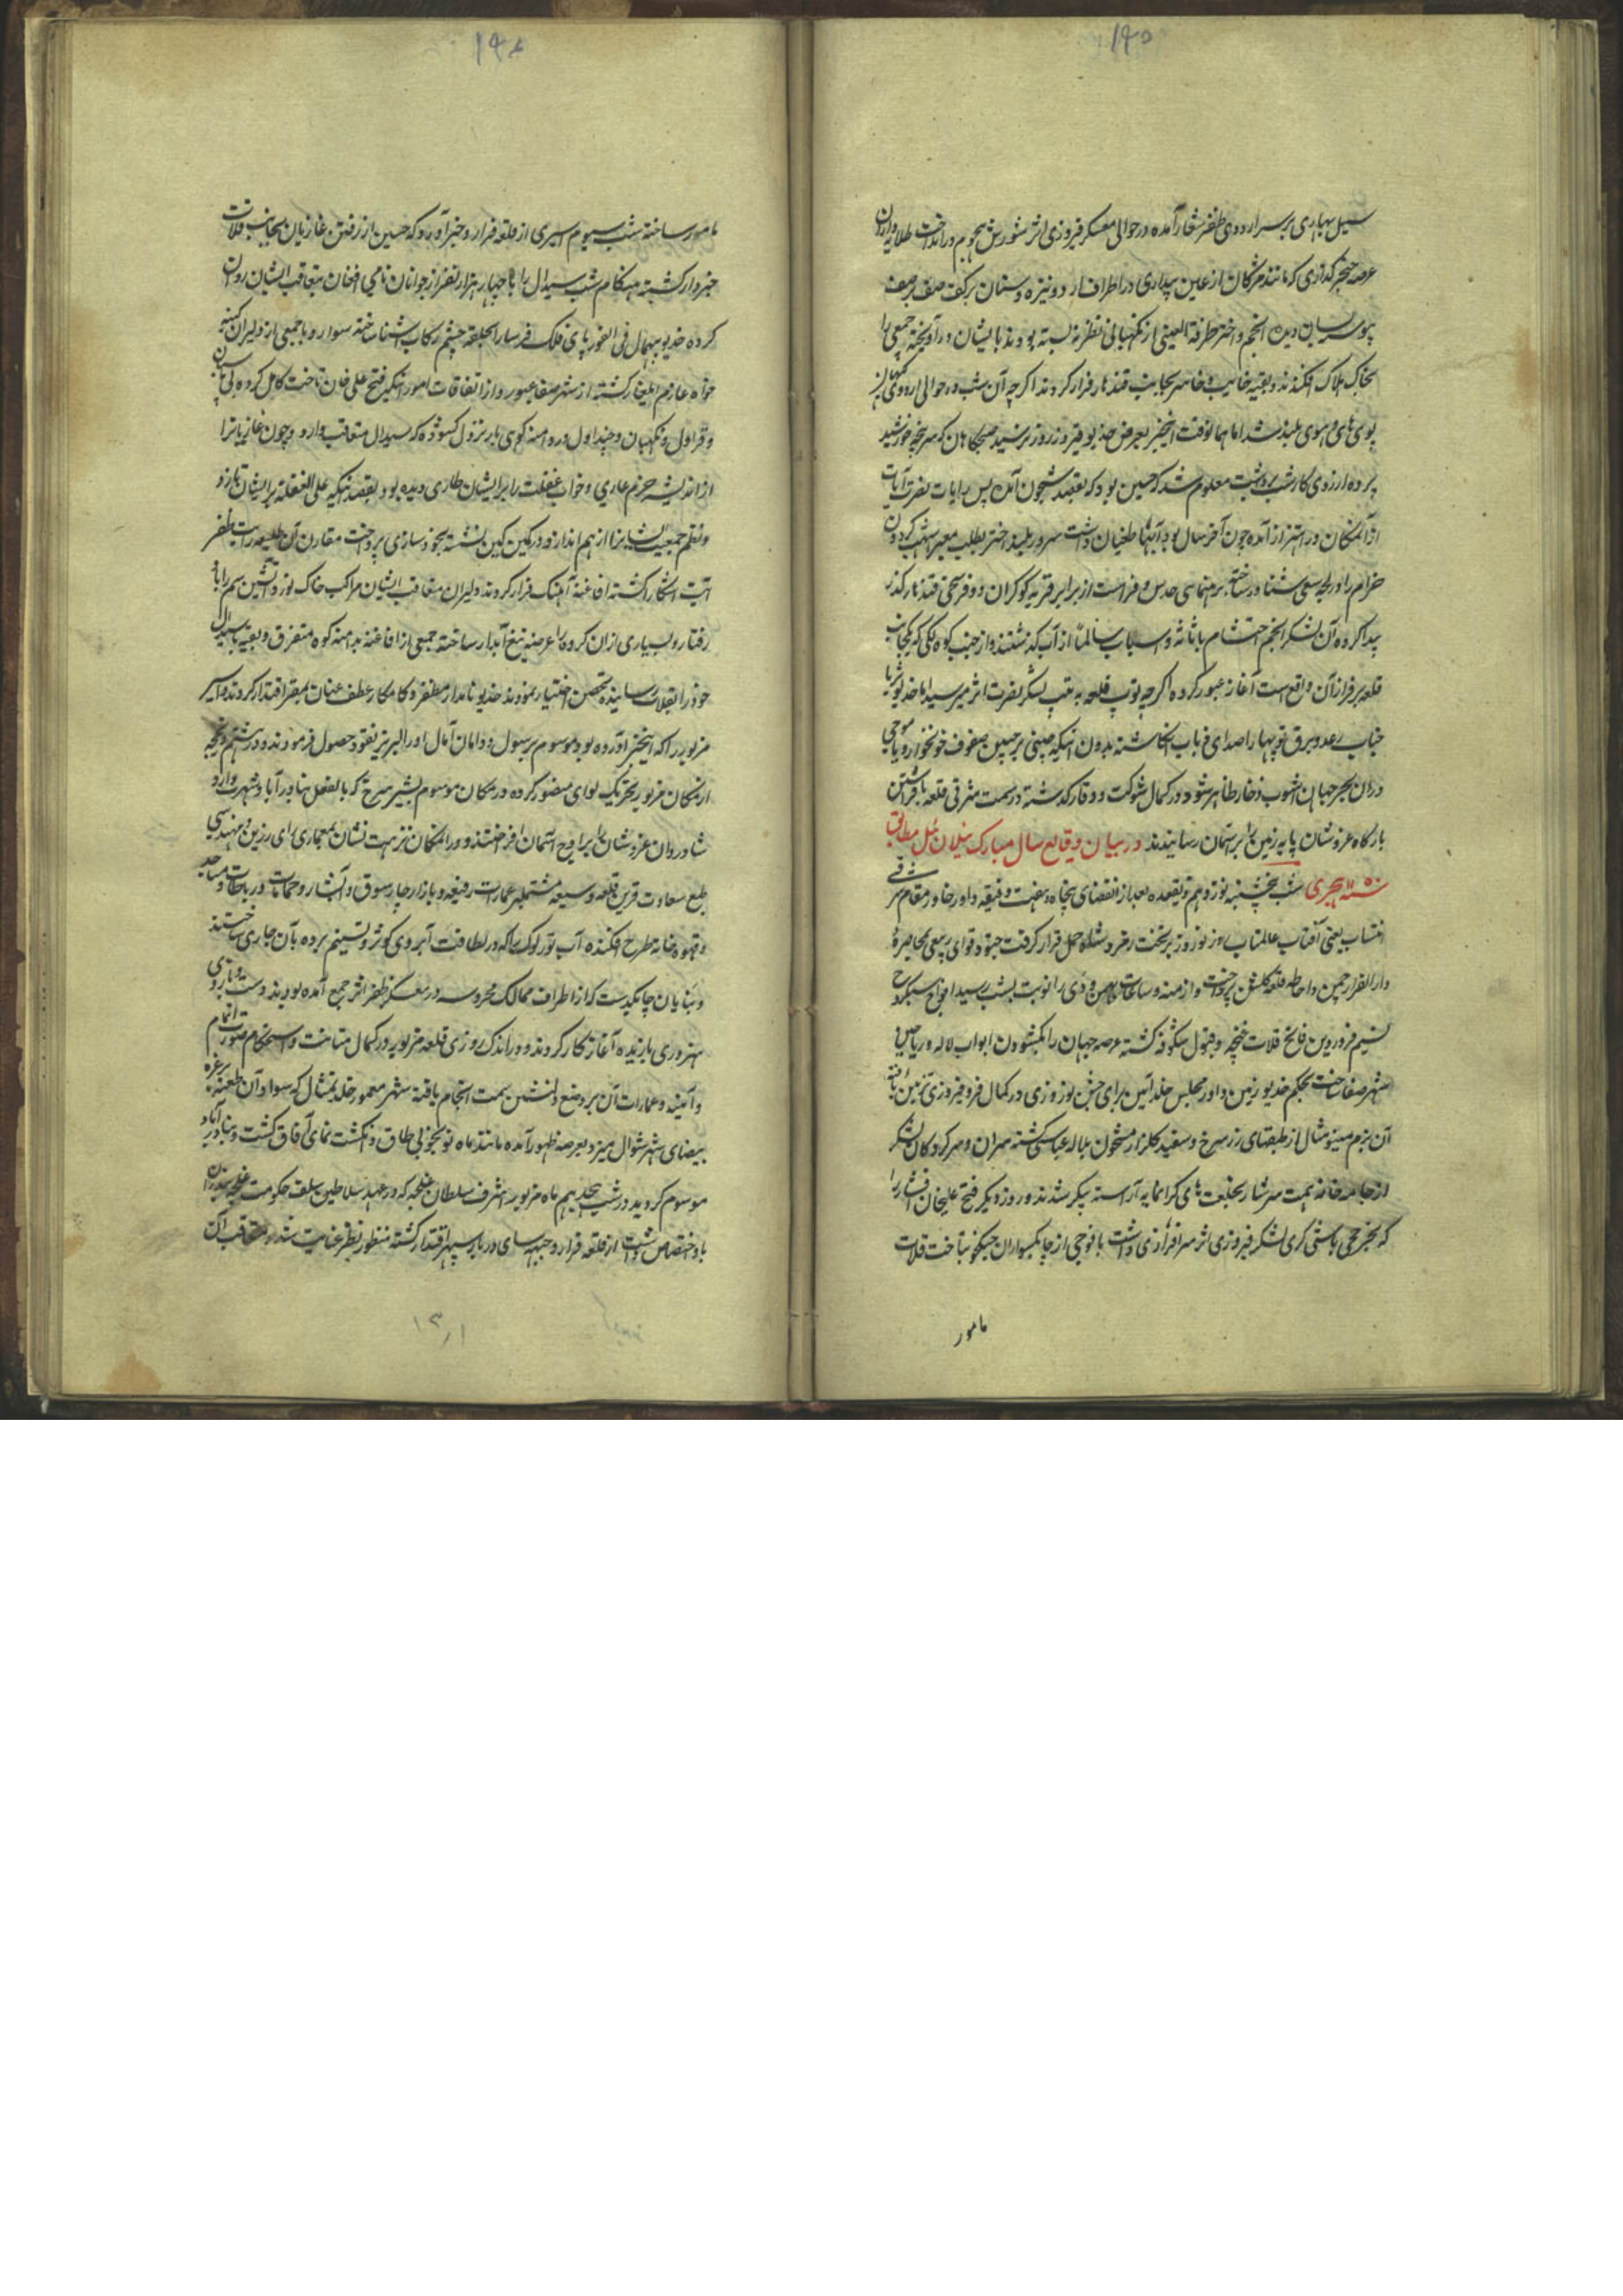 ۱۴۵
سیل بهاری بر سر اردوی ظفر شعار آمده در حوالی معسکر فیروزی اثر شورش هجوم در انداخت طلایه داران
عرصه خنجر گذاری که مانند مژگان از عین بیداری در اطراف اردو نیزه و سنان بر کف صف بر صف
چون پاسبان دیده انجم و اختر طرفة العینی از نگهبانی نظر نه بسته بودند بایشان در آویخته جمعی را
بخاک هلاک افکندند و بقیه خایب و خاسر بجانب قندهار فرار کردند اگرچه آن شب در حوالی اردوی
هوی های و هوی بلند شد اما همانوقت اینخبر بعرض خدیو فیروز روز نرسید صبحگاهان که سر پنجه خورشید
پرده از روی کار شب برداشت معلوم شد که حسین بوده که بقصد شبخون آمده پس رایات نصرت آیات
از آنمکان در اهتزاز آمده چون آخر سال بود و آبها طغیان داشت سرور بلند اختر بطلب معبر اشهب گردون
خرام را در لجه سعی شناور ساخته برهنمای حدس و فراست از برابر قریه کوکران دو فرسخی قندهار گذر
پیدا کرده آن لشکر انجم احتشام با بنه و اسباب سالماً از آب گذشتند و از جنب کوه لکی که بجانب
قلعه بر فراز آن واقعست آغاز عبور کرده اگرچه توپ قلعه به تیپ لشکر نصرت اثر میرسید اما خدیو ثریا
جناب رعد و برق توپها را صدای ذباب انگاشته بدون اینکه چینی بر جبین صفوف خونخوار و یا موجی
در آن بحر جهان آشوب ذخار ظاهر شود در کمال شوکت و وقار گذشته در سمت شرقی قلعه بافراشتن
بارگاه عز و شان پایه زمین را بر آسمان رسانیدند در بیان وقایع سال مبارک ییلان ئیل مطابق
سنه ۱۱۵۰ هجری شب پنجشنبه نوزدهم ذیقعده بعد از انقضای پنجاه و هفت دقیقه داور خاور مقام مشرقی
انتساب یعنی آفتاب عالمتاب روز نوروز بر تخت زمرد شکوه حمل قرار گرفت جنود قوای ربیعی بمحاصرهٔ
دار القرار چمن و احاطه قلعه گلشن پرداخت و ازمنه و ساعات بهمن و دی را نوبت بشب رسید افواج سبکروح
نسیم فروردین فاتح قلات غنچه و هزول شکوفه گشته عرصه جهان را بگشودن ابواب لاله و ریاحین
شهر صفا ساخت بحکم خدیو زمین و داور مجلس خلد آئین برای جشن نوروزی در کمال فر و فیروزی تزیین یافته
آن بزم مینو مثال از طبقهای زر سرخ و سفید گلزار مشحون بلاله عباسی گشته سران و سرکردگان لشکر
از جامه خانه همت سرشار بخلعت های گرانمایه آراسته پیکر شدند و روز دیگر فتح علیخان افشار را
که بچرخچی باشی گری لشکر فیروزی اثر سرافرازی داشت با فوجی از چابکسواران جنگجو بتاخت قلات
مامور
مامور ساخته شب سیوم اسیری از قلعه فرار و خبر آورد که حسین از رفتن غازیان بجانب قلات
خبردار گشته هنگام شب سیدال را با چهار هزار نفر از جوانان نامی افغان بتعاقب ایشان روان
کرده خدیو بیهمال فی الفور پای فلک فرسا را بحلقه چشم رکاب آشنا ساخته سوار و با جمعی از دلیران کینه
خواه عازم ایلغار گشته از شهر صفا عبور و از اتفاقات امور اینکه فتح علی خان تاخت کامل کرده بی
و قراول و نگهبان و چنداول در دامنه کوهی بار نزول گشوده که سیدال متعاقب وارد و چون غازیانرا
از اندیشه حزم عاری و خواب غفلت را بر ایشان طاری دیده بود بقصد اینکه علی الغفله بر ایشان تازد و
نظم جمعیت ایشانرا از هم اندازد در کمین کین نشسته بخودسازی پرداخت مقارن آن طلیعه رایت ظفر
آیت آشکار گشته افاغنه آهنگ فرار کردند دلیران متعاقب ایشان مراکب خاک نورد آتشین سم را باد
رفتار و بسیاری از آن گروه را عرضه تیغ آبدار ساخته جمعی از افاغنه بدامنه کوه متفرق و بقیه با سیدال
خود را بقلات رسانیده تحصن اختیار نمودند خدیو نامدار مظفر و کامکار عطف عنان بمقر اقتدار کردند و اسیر
مزبور را که اینخبر آورده بود موسوم بر سول و دامان آمال او را لبریز نقود حصول فرمودند و در ششم ذیحجه
از مکان مزبور بتحریک لوای منصور کرده در مکان موسوم بشیر سرخ که بالفعل بنادرآباد شهرت دارد
شادروان عز و شان را بر اوج آسمان افراختند و در آنمکان نزهت نشان بمعماری رای رزین و مهندسی
طبع سعادت قرین قلعه وسیعه مشتمله بر عمارات رفیعه و بازار چارسوق و آبشار و حمامات و رباطات و مساجد
و قهوه خانه طرح افکنده آب تورلوک را که در لطافت آبروی کوثر و تسنیم برده بآن جاری ساختند
و بنایان چابکدست که از اطراف ممالک محروسه در معسکر ظفر اثر جمع آمده بودند دست و بازوی
هنروری یازیده آغاز کار کردند و در اندک روزی قلعه مزبور در کمال متانت و استحکام صورت اتمام
و ابنیه و عمارات آن بر وضع دلنشین سمت انجام یافته شهر معمور خلد تمثال که سواد آن طعنه بر غره
بیضای شهر شوال میزد بعرصه ظهور آمده مانند ماه نو بخوبی طاق و انگشت نمای آفاق گشت و بنادرآباد
موسوم گردید در شب هجدهم ماه مزبور اشرف سلطان غلجه که در عهد سلاطین سلف حکومت غلجه
باو اختصاص داشت از قلعه فرار و جبهه سای دربار سپهر اقتدار گشته منظور نظر عنایت شد و متعاقب آن